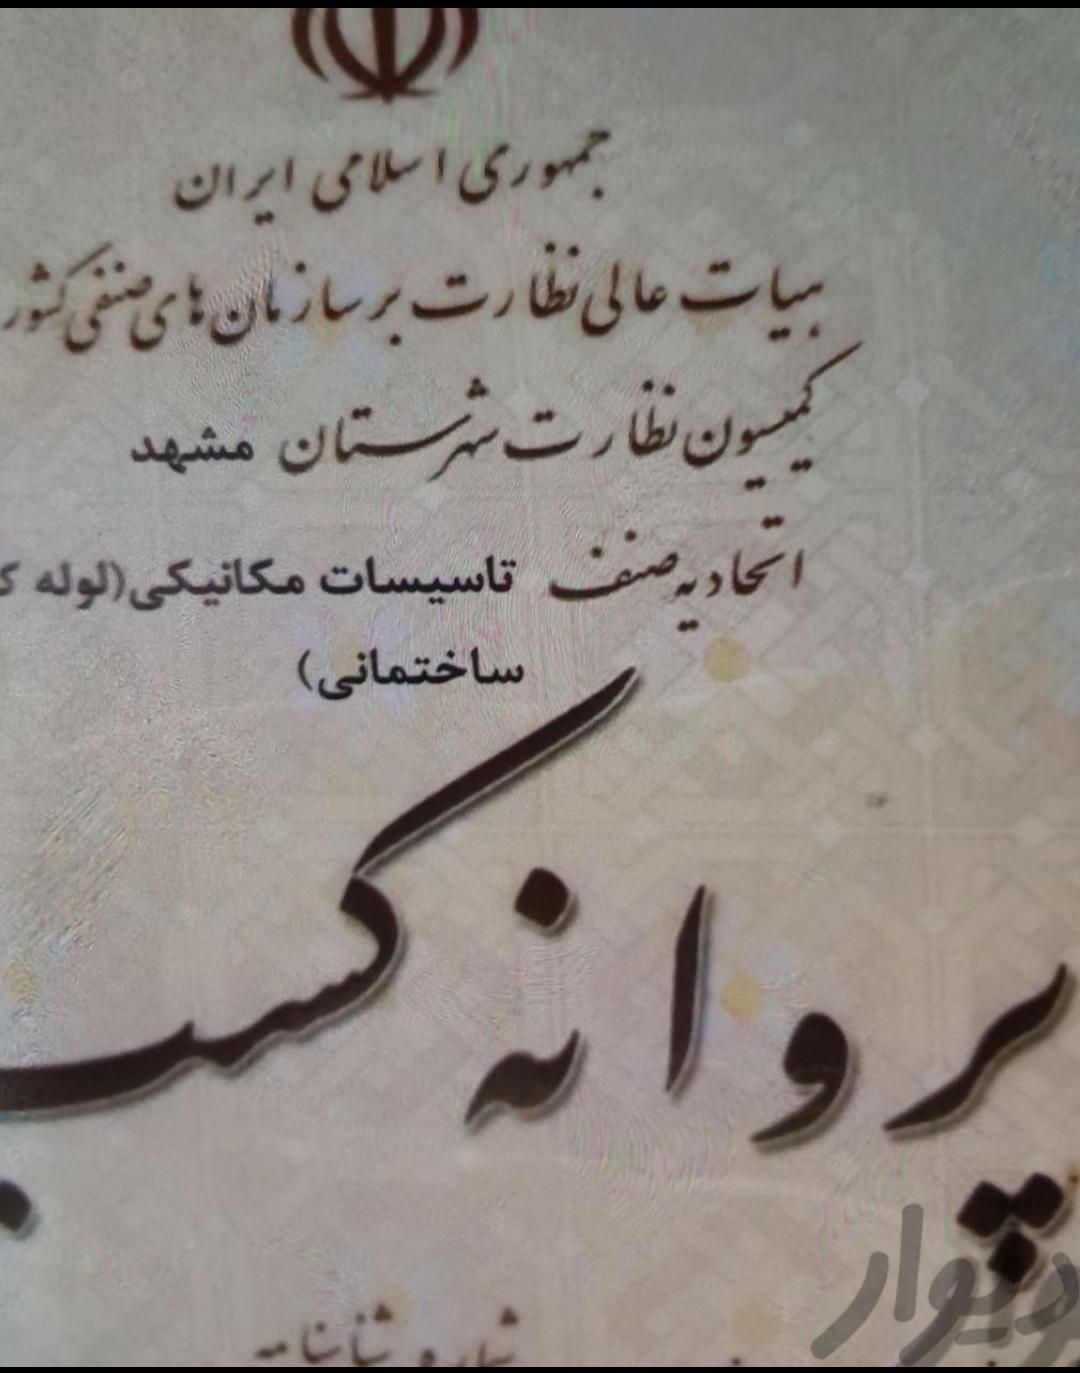 جمهوری اسلامی ایران
هیات عالی نظارت بر سازمان های صنفی کشور
کمیسیون نظارت شهرستان مشهد
اتحادیه صنف تاسیسات مکانیکی(لوله ک
ساختمانی)
پروانه کسب
شماره شناسنامه
دیوار